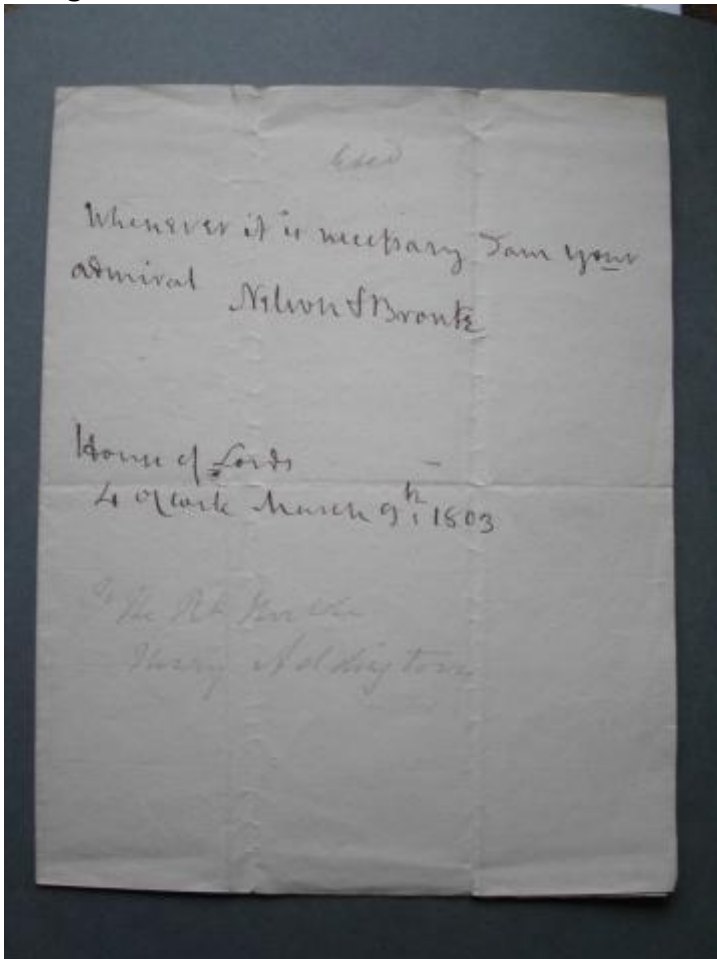 Whenever it is necessary I am your
admiral Nelson & Bronte
House of Lords
4 oClock March 9th: 1803
To The Rt Honble
Henry Addington